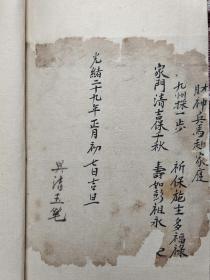 財神兵馬赴家庭
九州採一步 祈保施主多福祿
家門清吉保千秋 壽如彭祖永
光緒二十九年正月初七日吉旦
吳清玉筆